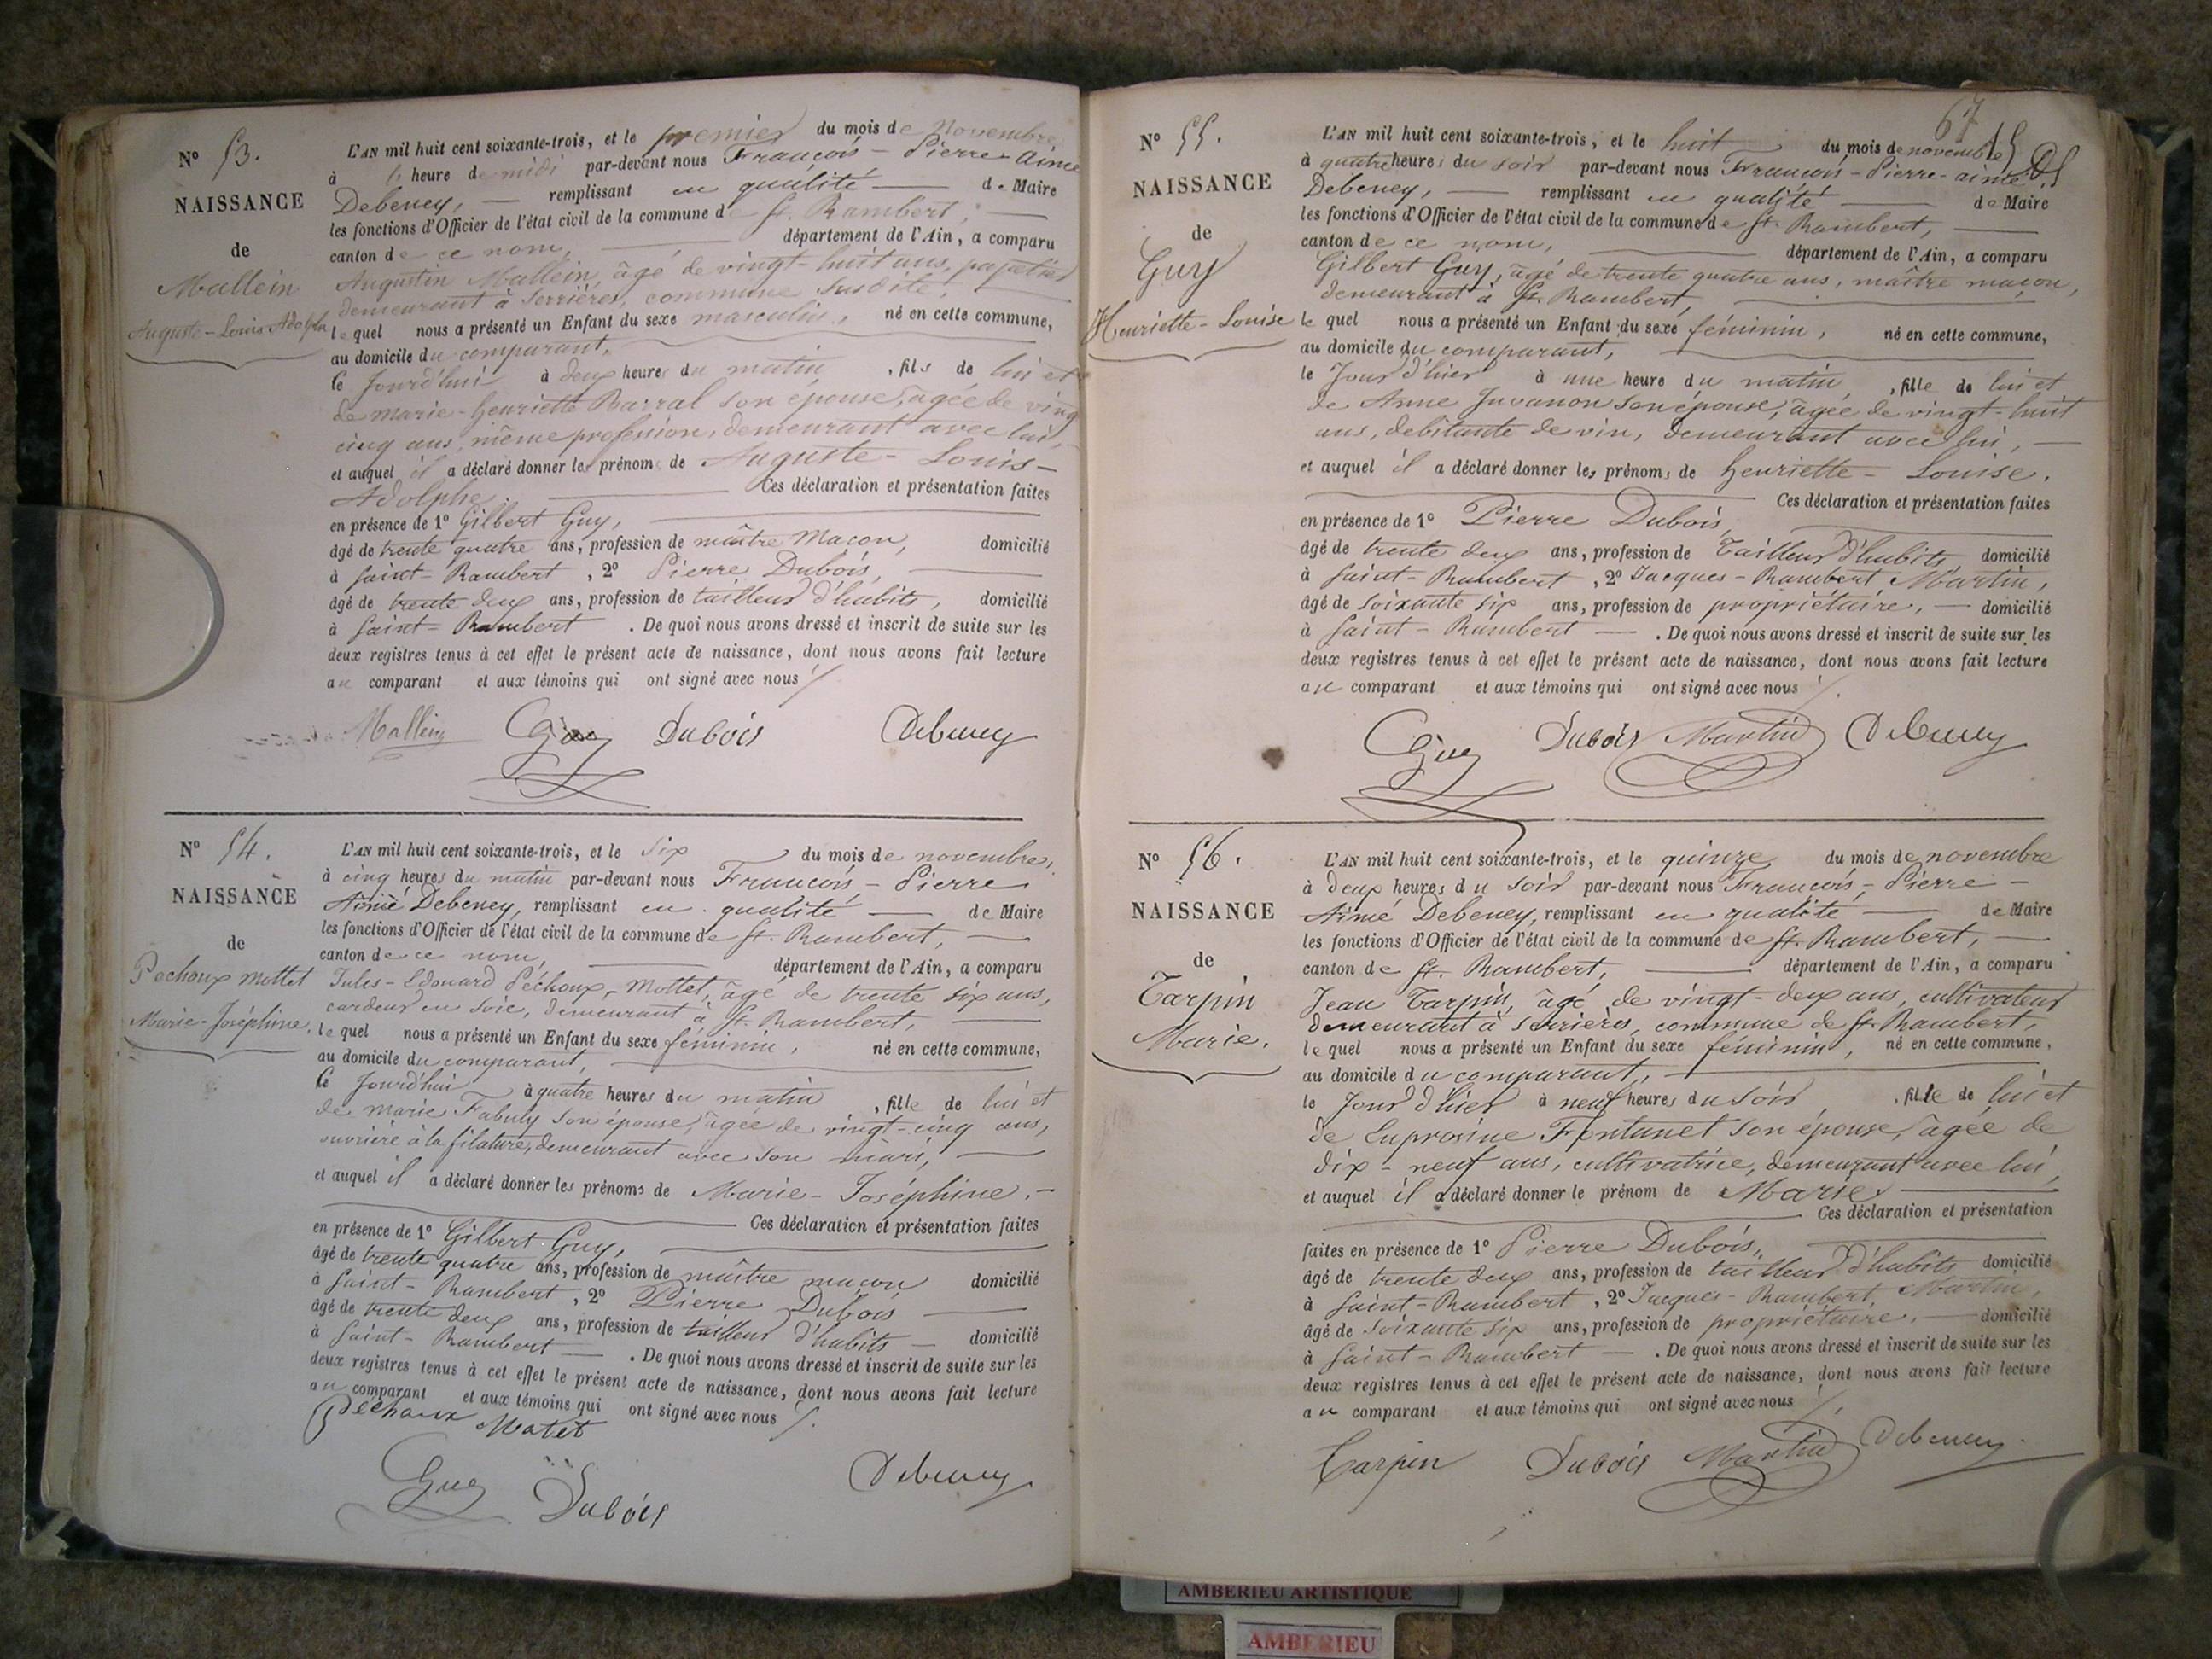 N° 53.
NAISSANCE
de
Mallein
Auguste-Louis Adolphe
L'AN mil huit cent soixante-trois, et le premier du mois de Novembre
à l' heure de midi par-devant nous François-Pierre Aimé
Debeney, remplissant en qualité de Maire
les fonctions d'Officier de l'état civil de la commune de St. Rambert,
canton de ce nom, département de l'Ain, a comparu
Augustin Mallein, âgé de vingt-huit ans, papetier
demeurant à Serrières, commune susdite,
lequel nous a présenté un Enfant du sexe masculin, né en cette commune,
au domicile du comparant,
le Jourd'hui à deux heures du matin, fils de lui et
de marie-henriette Barral son épouse, âgée de vingt
cinq ans, même profession, demeurant avec lui,
et auquel il a déclaré donner les prénoms de Auguste-Louis-
Adolphe. Ces déclaration et présentation faites
en présence de 1° Gilbert Guy,
âgé de trente quatre ans, profession de maître Maçon, domicilié
à Saint-Rambert, 2° Pierre Dubois,
âgé de trente deux ans, profession de tailleur d'habits, domicilié
à Saint-Rambert. De quoi nous avons dressé et inscrit de suite sur les
deux registres tenus à cet effet le présent acte de naissance, dont nous avons fait lecture
au comparant et aux témoins qui ont signé avec nous
Mallein Guy Dubois Debeney
N° 54.
NAISSANCE
de
Pechoux Mottet
Marie-Joséphine.
L'AN mil huit cent soixante-trois, et le Six du mois de novembre,
à cinq heures du matin par-devant nous François-Pierre
Aimé Debeney, remplissant en qualité de Maire
les fonctions d'Officier de l'état civil de la commune de St. Rambert,
canton de ce nom, département de l'Ain, a comparu
Jules-Edouard Péchoux-Mottet, âgé de trente six ans,
cardeur en soie, demeurant à St. Rambert,
lequel nous a présenté un Enfant du sexe féminin, né en cette commune,
au domicile du comparant,
le Jourd'hui à quatre heures du matin, fille de lui et
de marie Fabuly son épouse, âgée de vingt-cinq ans,
ouvrière à la filature, demeurant avec son mari,
et auquel il a déclaré donner les prénoms de Marie-Joséphine.
Ces déclaration et présentation faites
en présence de 1° Gilbert Guy,
âgé de trente quatre ans, profession de maître maçon, domicilié
à Saint-Rambert, 2° Pierre Dubois
âgé de trente deux ans, profession de tailleur d'habits domicilié
à Saint-Rambert. De quoi nous avons dressé et inscrit de suite sur les
deux registres tenus à cet effet le présent acte de naissance, dont nous avons fait lecture
au comparant et aux témoins qui ont signé avec nous
Péchoux Matet
Guy Dubois Debeney
67
N° 55.
NAISSANCE
de
Guy
Henriette-Louise
L'AN mil huit cent soixante-trois, et le huit du mois de novembre
à quatre heures du soir par-devant nous François-Pierre-aimé
Debeney, remplissant en qualité de Maire
les fonctions d'Officier de l'état civil de la commune de St. Rambert,
canton de ce nom, département de l'Ain, a comparu
Gilbert Guy, âgé de trente quatre ans, maître maçon,
demeurant à St. Rambert,
lequel nous a présenté un Enfant du sexe féminin, né en cette commune,
au domicile du comparant,
le Jour d'hier à une heure du matin, fille de lui et
de Anne Juvanon son épouse, âgée de vingt-huit
ans, debitante de vin, demeurant avec lui,
et auquel il a déclaré donner les prénoms de henriette-Louise.
Ces déclaration et présentation faites
en présence de 1° Pierre Dubois,
âgé de trente deux ans, profession de Tailleur d'habits, domicilié
à Saint-Rambert, 2° Jacques-Rambert Martin,
âgé de soixante six ans, profession de propriétaire, domicilié
à Saint-Rambert. De quoi nous avons dressé et inscrit de suite sur les
deux registres tenus à cet effet le présent acte de naissance, dont nous avons fait lecture
au comparant et aux témoins qui ont signé avec nous
Guy Dubois Martin Debeney
N° 56.
NAISSANCE
de
Tarpin
Marie.
L'AN mil huit cent soixante-trois, et le quinze du mois de novembre
à deux heures du soir par-devant nous François-Pierre-
Aimé Debeney, remplissant en qualité de Maire
les fonctions d'Officier de l'état civil de la commune de St. Rambert,
canton de St. Rambert, département de l'Ain, a comparu
Jean Tarpin, âgé de vingt-deux ans, cultivateur
demeurant à serrières, commune de St. Rambert,
lequel nous a présenté un Enfant du sexe féminin, né en cette commune,
au domicile du comparant,
le Jour d'hier à neuf heures du soir, fille de lui et
de Euprosine Fontanet son épouse, âgée de
dix-neuf ans, cultivatrice, demeurant avec lui,
et auquel il a déclaré donner le prénom de Marie.
Ces déclaration et présentation
faites en présence de 1° Pierre Dubois,
âgé de trente deux ans, profession de tailleur d'habits domicilié
à Saint-Rambert, 2° Jacques-Rambert Martin,
âgé de soixante six ans, profession de propriétaire, domicilié
à Saint-Rambert. De quoi nous avons dressé et inscrit de suite sur les
deux registres tenus à cet effet le présent acte de naissance, dont nous avons fait lecture
au comparant et aux témoins qui ont signé avec nous
Tarpin Dubois Martin Debeney
AMBERIEU ARTISTIQUE
AMBERIEU